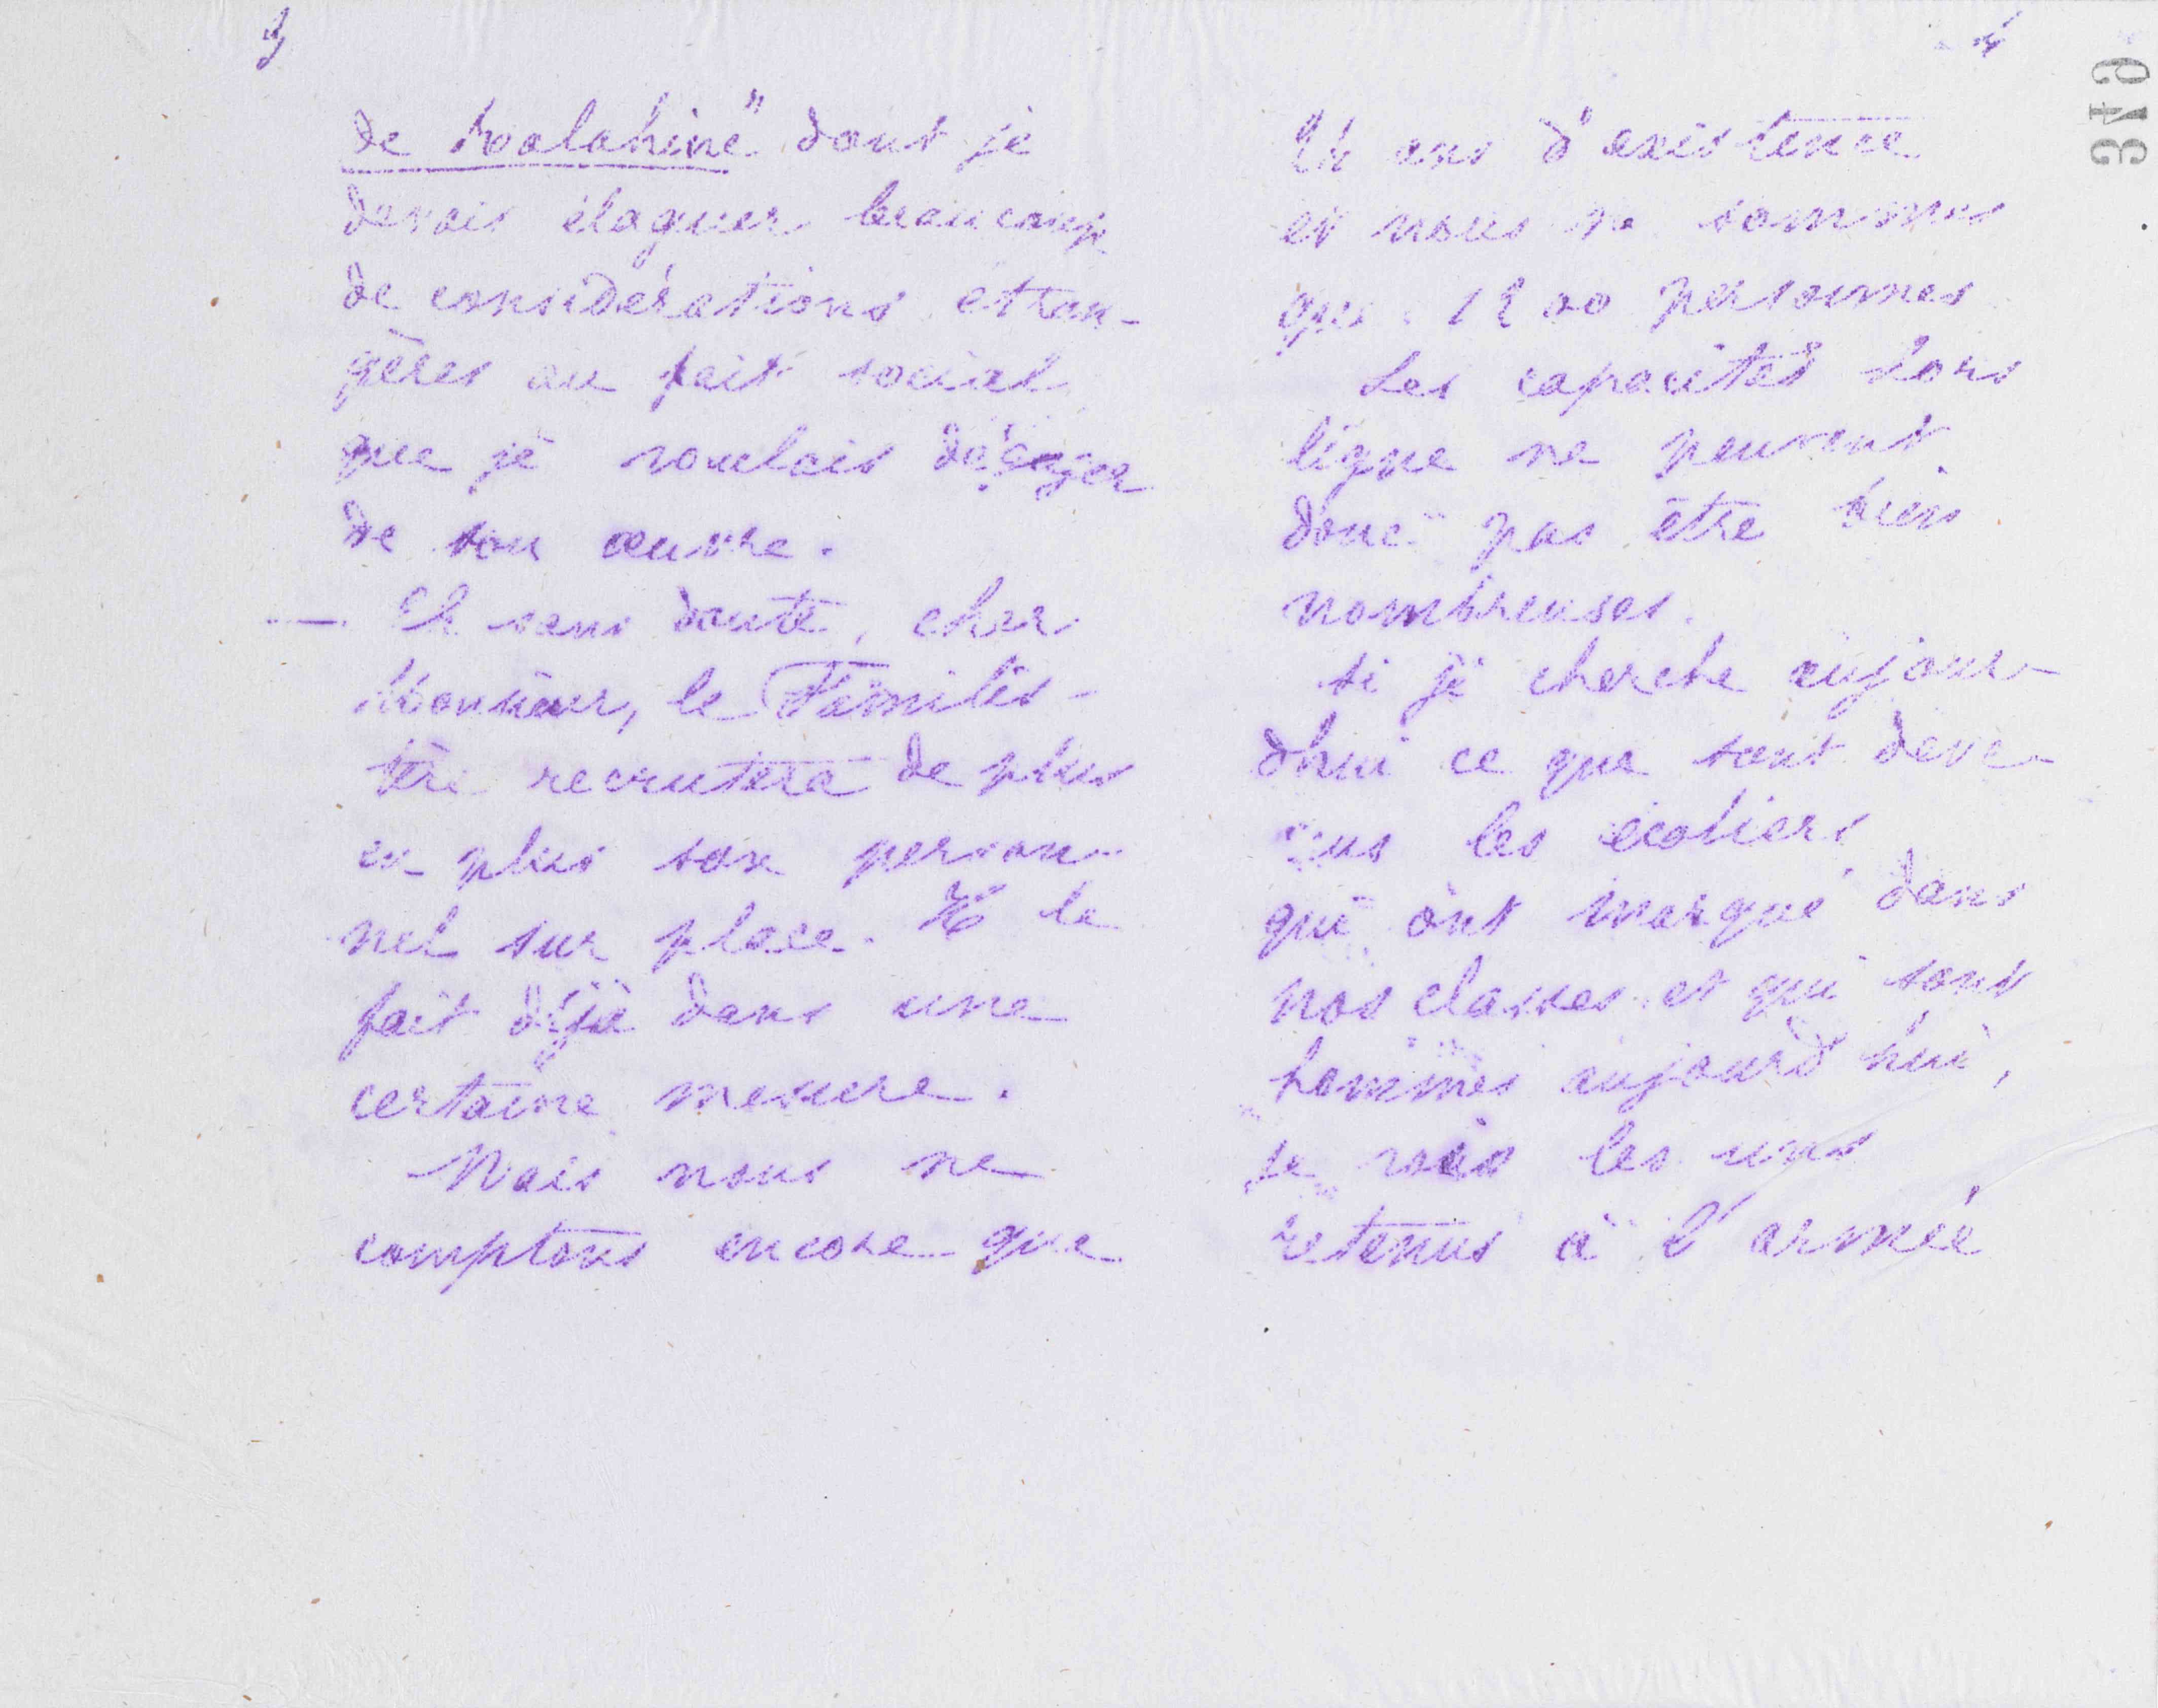 3
de Ralahine" dont je
devais élaguer beaucoup
de considérations étran-
gères au fait social
que je voulais dégager
de son œuvre.
— Et sans doute, cher
Monsieur, le Familis-
tère recrutera de plus
en plus son person-
nel sur place. Il le
fait déjà dans une
certaine mesure.
Mais nous ne
comptons encore que
4
349
ans d'existence
et nous ne sommes
que 1200 personnes
Les capacités hors
ligne ne peuvent
donc pas être bien
nombreuses.
Si je cherche aujour-
d'hui ce que sont deve-
nus les écoliers
qui ont marqué dans
nos classes et qui sont
hommes aujourd'hui,
je vois les uns
retenus à l'armée